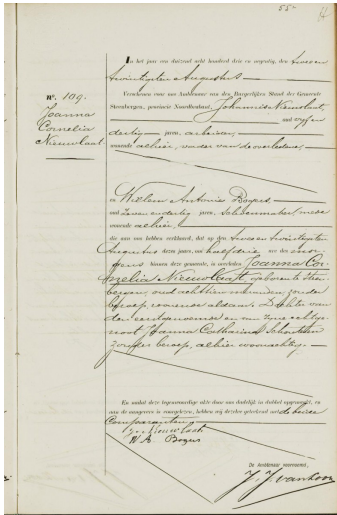 55
4
In het jaar een duizend acht honderd drie en negentig, den tweeen
twintigsten Augustus
Verschenen voor ons Ambtenaar van den Burgerlijken Stand der Gemeente
Steenbergen, provincie Noordbrabant, Johannes Nieuwlaat,
nº. 109.
Joanna
Cornelia
Nieuwlaat
oud vijfen
dertig jaren, arbeider,
wonende alhier, vader van de overledene,
en Willem Antonie Bogers
oud zevenendertig jaren, schoenmaker, mede
wonende alhier,
die aan ons hebben verklaard, dat op den tweeen twintigsten
Augustus dezes jaars, ten half drie ure des mor-
gens binnen deze gemeente, is overleden Joanna Cor-
nelia Nieuwlaat, geboren te Steen-
bergen, oud achttien maanden, zonder
beroep, wonende alsaan, Dochter van
den eerstgenoemde en van zijne echtge-
noot Joanna Catharina
zonder beroep, alhier woonachtig.
En nadat deze tegenwoordige akte door ons dadelijk in dubbel opgemaakt, en
aan de aangevers is voorgelezen, hebben wij dezelve geteekend met de beide
Comparanten
J. Nieuwlaat
W A. Bogers
De Ambtenaar voornoemd,
J. J. van Loon